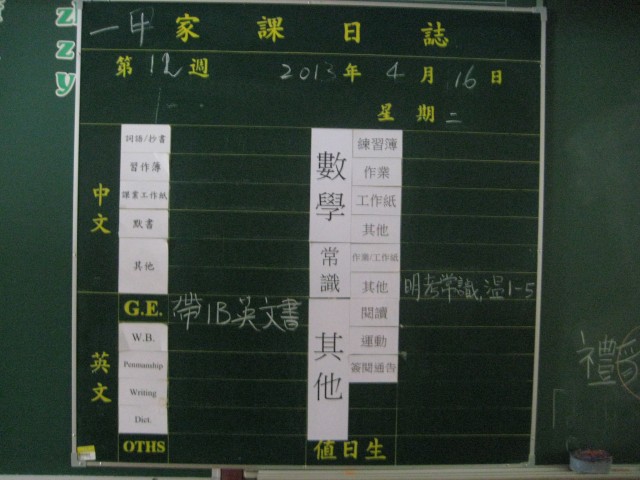 一甲 家課日誌
第 12 週 2013 年 4 月 16 日
星期 二
中文
詞語/抄書
習作簿
課業工作紙
默書
其他
英文
G.E. 帶1B英文書
W.B.
Penmanship
Writing
Dict.
OTHS
數學
練習簿
作業
工作紙
其他
常識
作業/工作紙
其他 明考常識,溫1-5
其他
閱讀
運動
簽閱通告
值日生
z
z
y